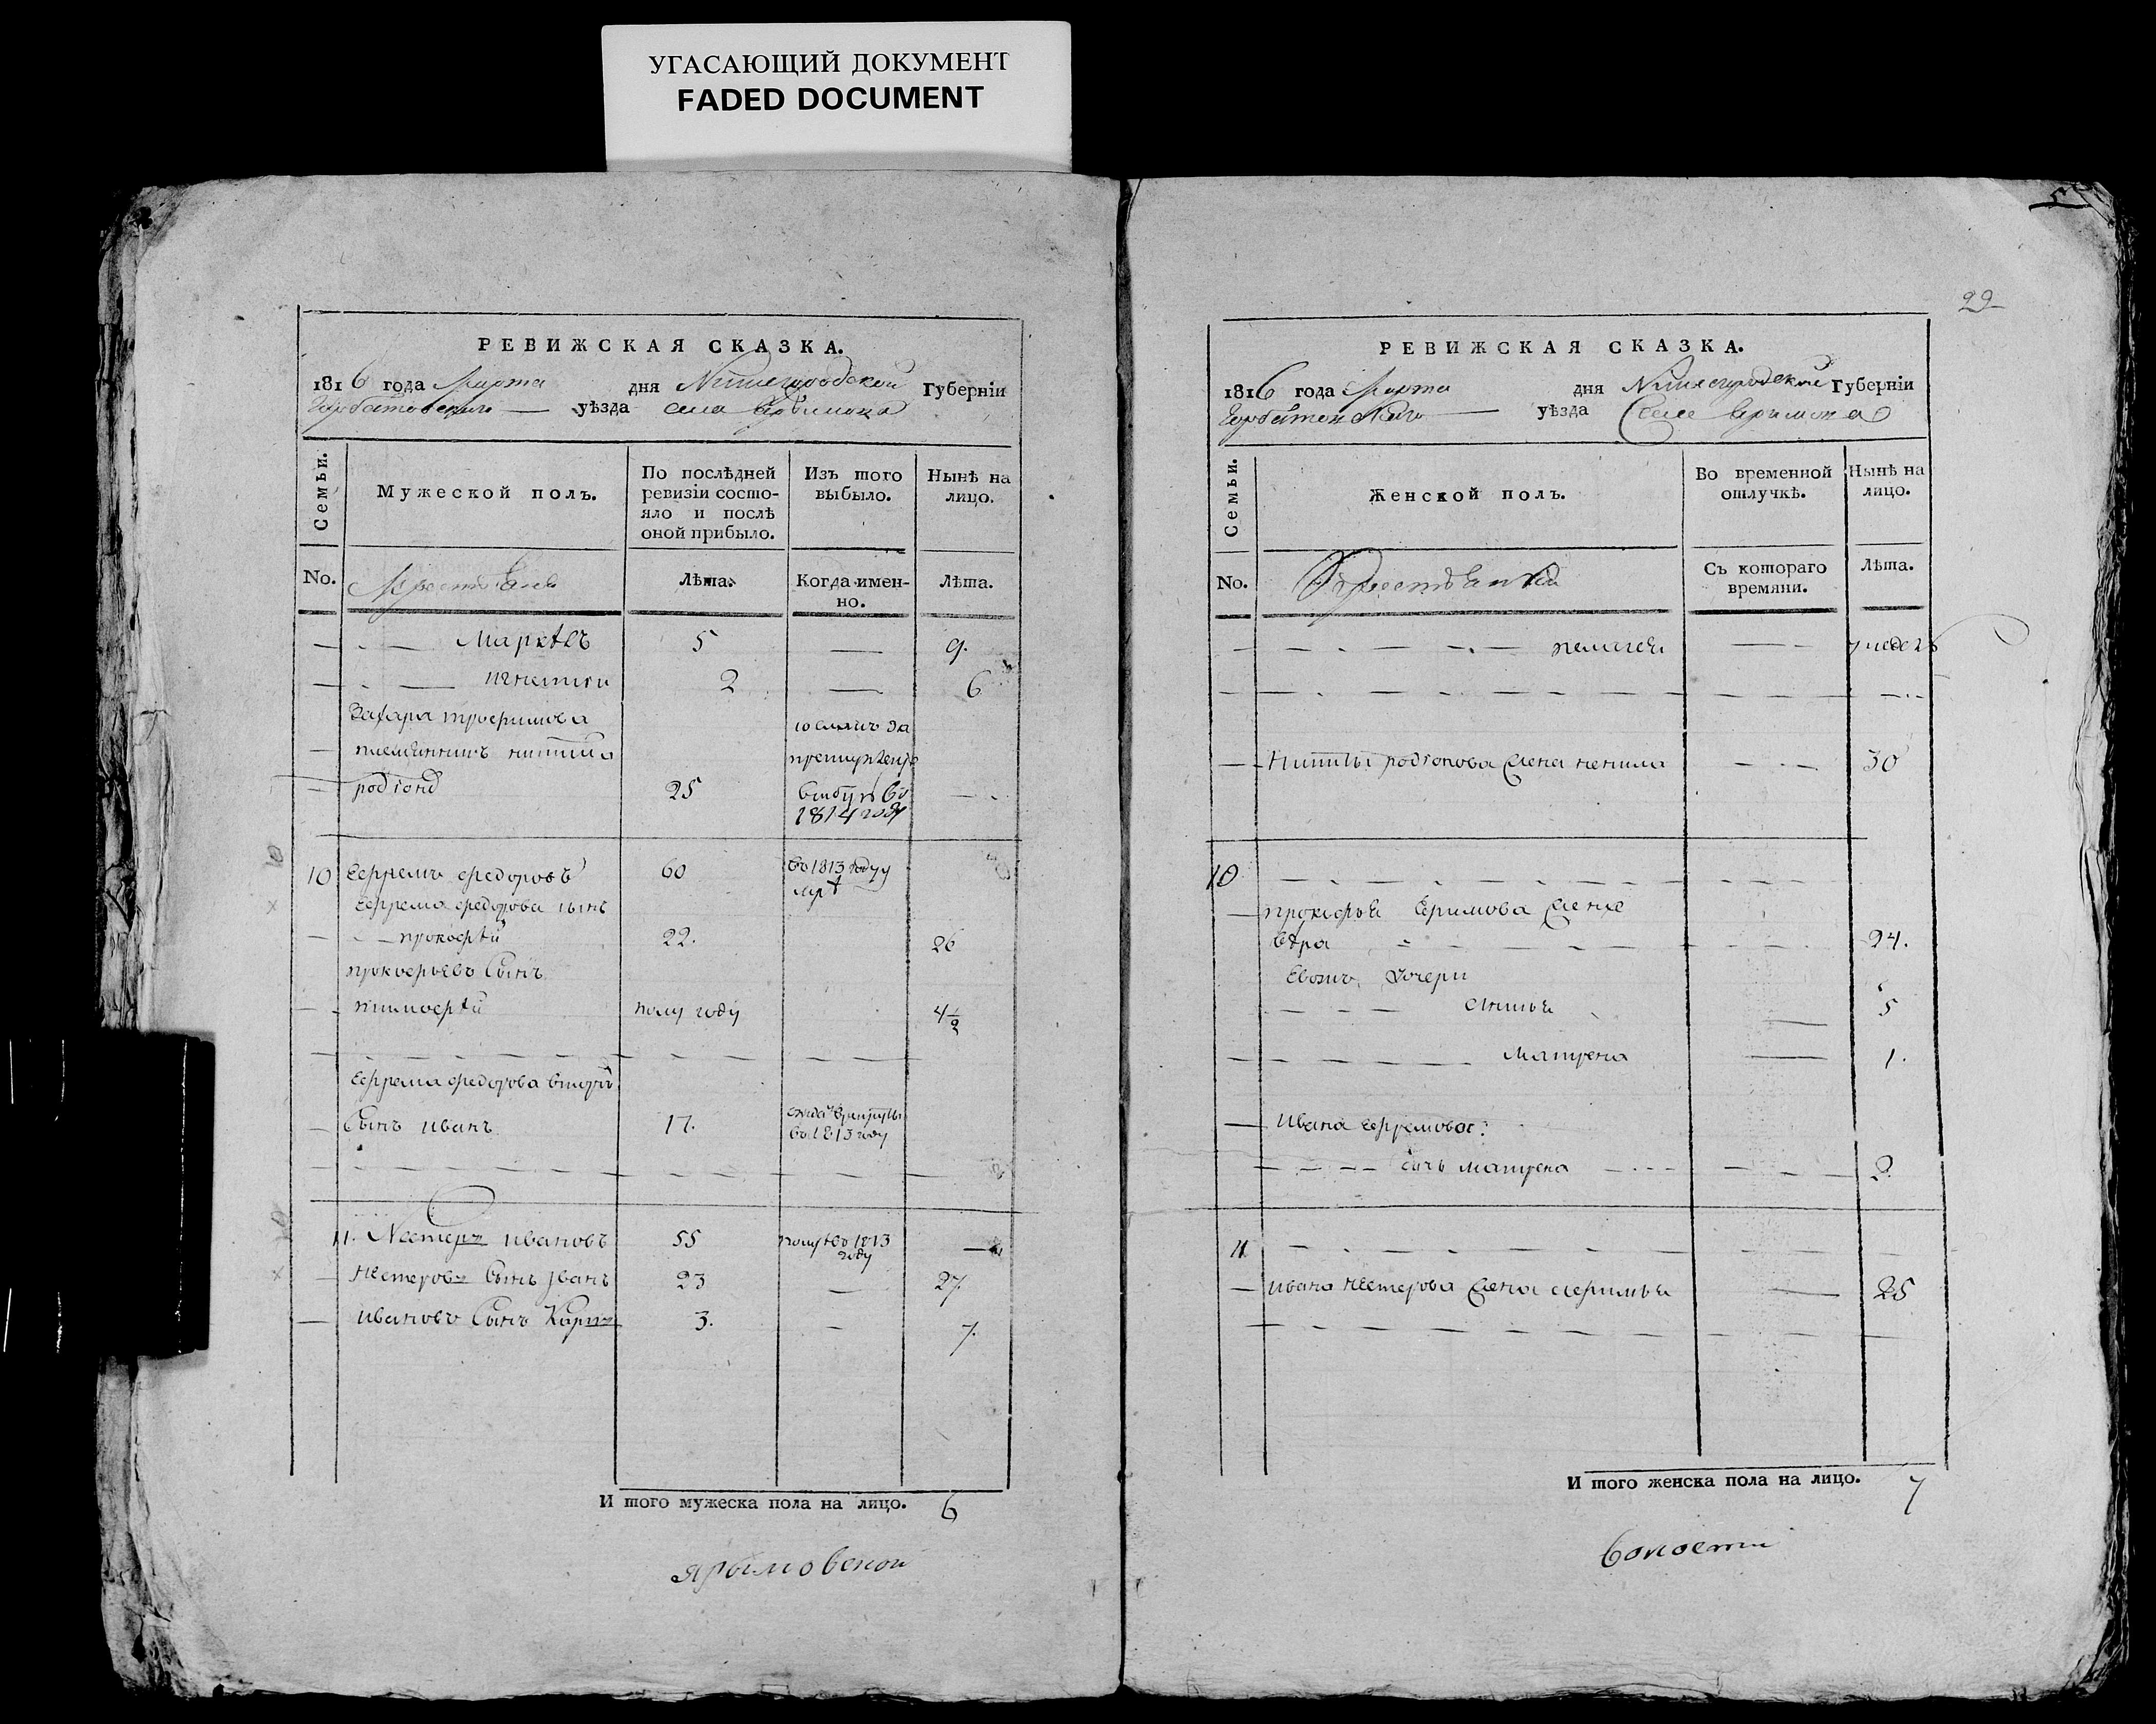 УГАСАЮЩИЙ ДОКУМЕНТ
FADED DOCUMENT
РЕВИЖСКАЯ СКАЗКА.
1816 года Марта дня Нижегородской Губернїи
уѣзда села
Семьи.
Мужеской полъ.
По послѣдней ревизїи состо-
яло и послѣ
оной прибыло.
Изъ того
выбыло.
Нынѣ на
лицо.
No.
Лѣта.
Когда имен-
но.
Лѣта.
5 — 9.
2 — 6
Захара трофимова
племянникъ никита
родїонъ 25
1814 году
10 Ефремъ федоровъ 60 въ 1813 году
Ефрема федорова сынъ
прокофѣй 22. 26
прокофьевъ Сынъ
тимофѣй полу году 4 1/2
Ефрема федорова вторый
Сынъ иванъ 17. въ 1813 году
11. Нестеръ ивановъ 55 1813
году
Нестеровъ Сынъ Иванъ 23 — 27.
ивановъ Сынъ Карпъ 3. — 7.
И того мужеска пола на лицо. 6
ярымовской
29
РЕВИЖСКАЯ СКАЗКА.
1816 года Марта дня Нижегородской Губернїи
уѣзда
Семьи.
Женской полъ.
Во временной
отлучкѣ.
Нынѣ на
лицо.
No.
Съ котораго
времяни.
Лѣта.
пелагея
Никиты родїонова жена ненила 30
10
прокофья Ефримова жена
вѣра 24.
Евожъ дочери
5
матрена 1.
ивана ефремова:
дочь матрена 2.
11
ивана нестерова жена афимья 25
И того женска пола на лицо. 7
волости